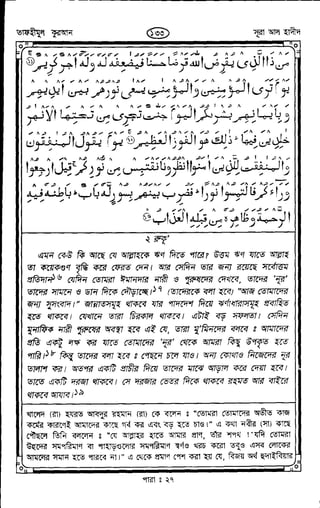 তাফহীমুল কুরআন
১৩৩
সূরা আল হাদীদ
مَن ذَا الَّذِى يُقْرِضُ اللهَ قَرْضًا حَسَنًا فَيُضٰعِفَهٗ لَهٗ وَلَهٗٓ اَجْرٌ كَرِيْمٌ ⑪
يَوْمَ تَرَى الْمُؤْمِنِيْنَ وَالْمُؤْمِنٰتِ يَسْعٰى نُوْرُهُمْ بَيْنَ اَيْدِيْهِمْ
وَبِاَيْمَانِهِمْ بُشْرٰىكُمُ الْيَوْمَ جَنّٰتٌ تَجْرِىْ مِنْ تَحْتِهَا الْاَنْهٰرُ
خٰلِدِيْنَ فِيْهَا ذٰلِكَ هُوَ الْفَوْزُ الْعَظِيْمُ ⑫ يَوْمَ يَقُوْلُ الْمُنٰفِقُوْنَ
وَالْمُنٰفِقٰتُ لِلَّذِيْنَ اٰمَنُوا انْظُرُوْنَا نَقْتَبِسْ مِنْ نُّوْرِكُمْ قِيْلَ ارْجِعُوْا
وَرَآءَكُمْ فَالْتَمِسُوْا نُوْرًا فَضُرِبَ بَيْنَهُمْ بِسُوْرٍ لَّهٗ بَابٌ بَاطِنُهٗ فِيْهِ
الرَّحْمَةُ وَظَاهِرُهٗ مِنْ قِبَلِهِ الْعَذَابُ ⑬
২ রুকূ'
এমন কেউ কি আছে যে আল্লাহকে ঋণ দিতে পারে? উত্তম ঋণ যাতে আল্লাহ
তা কয়েকগুণ বৃদ্ধি করে ফেরত দেন। আর সেদিন তার জন্য রয়েছে সর্বোত্তম
প্রতিদান১৬ যেদিন তোমরা ঈমানদার নারী ও পুরুষদের দেখবে, তাদের 'নূর'
তাদের সামনে ও ডান দিকে দৌড়াচ্ছে।১৭ (তাদেরকে বলা হবে) "আজ তোমাদের
জন্য সুসংবাদ।" জান্নাতসমূহ থাকবে যার পাদদেশ দিয়ে ঝর্ণাধারাসমূহ প্রবাহিত
হতে থাকবে। যেখানে তারা চিরকাল থাকবে। এটাই বড় সফলতা। সেদিন
মুনাফিক নারী পুরুষের অবস্থা হবে এই যে, তারা মু'মিনদের বলবে ঃ আমাদের
প্রতি একটু লক্ষ কর যাতে তোমাদের 'নূর' থেকে আমরা কিছু উপকৃত হতে
পারি।১৮ কিন্তু তাদের বলা হবে ঃ পেছনে চলে যাও। অন্য কোথাও নিজেদের নূর
তালাশ কর। অতপর একটি প্রাচীর দিয়ে তাদের মাঝে আড়াল করে দেয়া হবে।
তাতে একটি দরজা থাকবে। সে দরজার ভেতরে থাকবে রহমত আর বাইরে
থাকবে আযাব।১৯
খালেদ (রা) হযরত আবদুর রহমান (রা) কে বলেন ঃ "তোমরা তোমাদের অতীত কাজ
পৌছলে তিনি বললেন ঃ "যে আল্লাহর হাতে আমার প্রাণ, তাঁর শপথ! যদি তোমরা
পারা ঃ ২৭